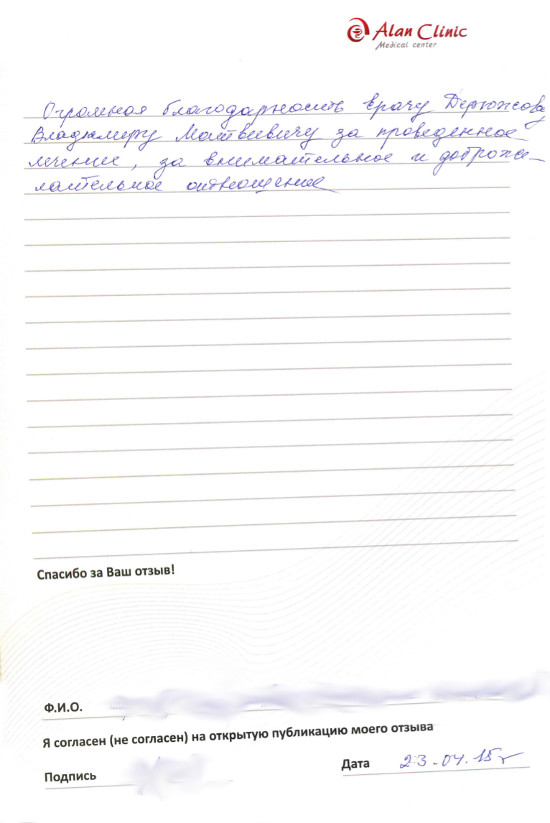 Alan Clinic
Medical center
Огромная благодарность врачу
Владимиру Матвеевичу за проведенное
лечение, за внимательное и доброже-
лательное отношение
Спасибо за Ваш отзыв!
Ф.И.О.
Я согласен (не согласен) на открытую публикацию моего отзыва
Подпись
Дата 23.04.15г